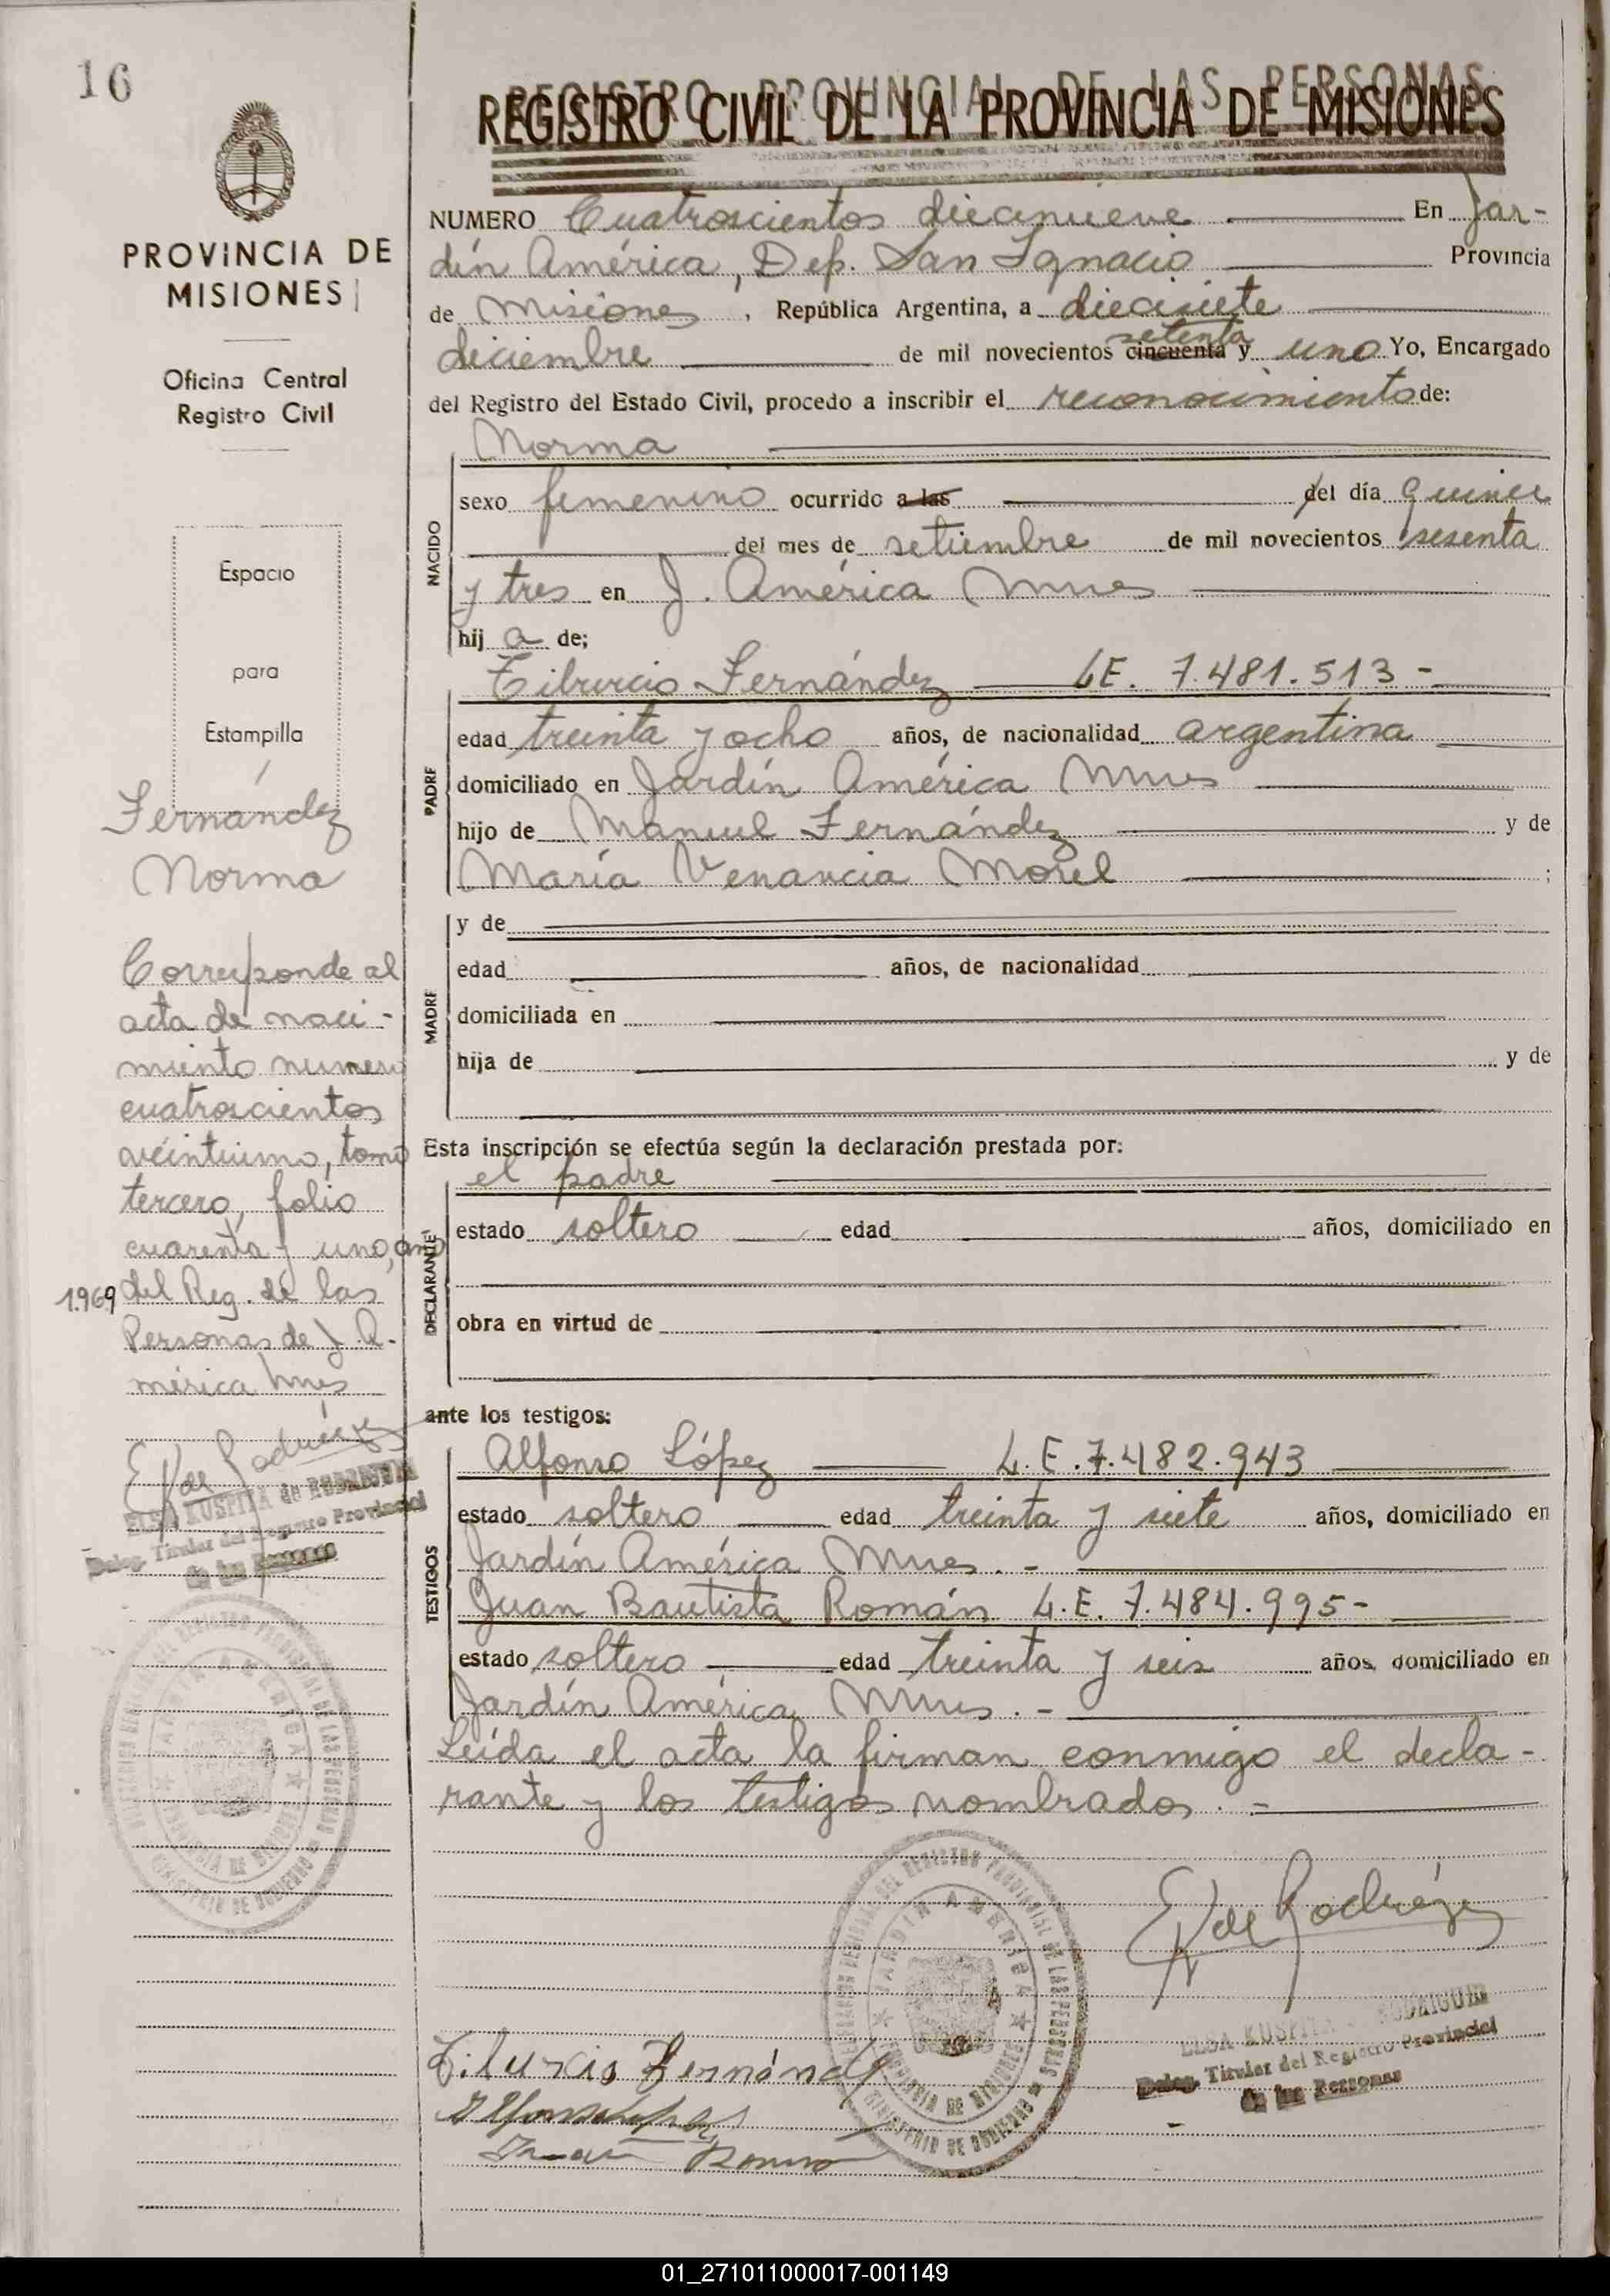 16
PROVINCIA DE
MISIONES
Oficina Central
Registro Civil
Espacio
para
Estampilla
Fernández
Norma
Corresponde al
acta de naci-
miento numero
cuatroscientos
veintiuno, tomo
tercero, folio
cuarenta y uno, año
1.969 del Reg. de las
Personas de J. A-
mérica Mnes
E K de Rodríguez
ELSA KUSPITA de RODRIGUEZ
Deleg. Titular del Registro Provincial
de las Personas
REGISTRO PROVINCIAL DE LAS PERSONAS
REGISTRO CIVIL DE LA PROVINCIA DE MISIONES
NUMERO Cuatroscientos diecinueve En Jar-
dín América, Dep. San Ignacio Provincia
de Misiones, República Argentina, a diecisiete
setenta
diciembre de mil novecientos cincuenta y uno Yo, Encargado
del Registro del Estado Civil, procedo a inscribir el reconocimiento de:
NACIDO
Norma
sexo femenino ocurrido a las del día quince
del mes de setiembre de mil novecientos sesenta
y tres en J. América Mnes
hij a de;
PADRE
Tiburcio Fernández LE. 7.481.513-
edad treinta y ocho años, de nacionalidad argentina
domiciliado en Jardín América Mnes
hijo de Manuel Fernández y de
María Venancia Morel ;
MADRE
y de
edad años, de nacionalidad
domiciliada en
hija de y de
Esta inscripción se efectúa según la declaración prestada por:
DECLARANTE
el padre
estado soltero edad años, domiciliado en
obra en virtud de
ante los testigos:
TESTIGOS
Alfonso López L.E. 7.482.943
estado soltero edad treinta y siete años, domiciliado en
Jardín América Mnes.-
Juan Bautista Román L.E. 7.484.995-
estado soltero edad treinta y seis años domiciliado en
Jardín América Mnes.-
Leída el acta la firman conmigo el decla-
rante y los testigos nombrados.-
E K de Rodríguez
ELSA KUSPITA de RODRIGUEZ
Deleg. Titular del Registro Provincial
de las Personas
JARDIN AMERICA
MINISTERIO DE GOBIERNO
Tiburcio Fernández
01_271011000017-001149